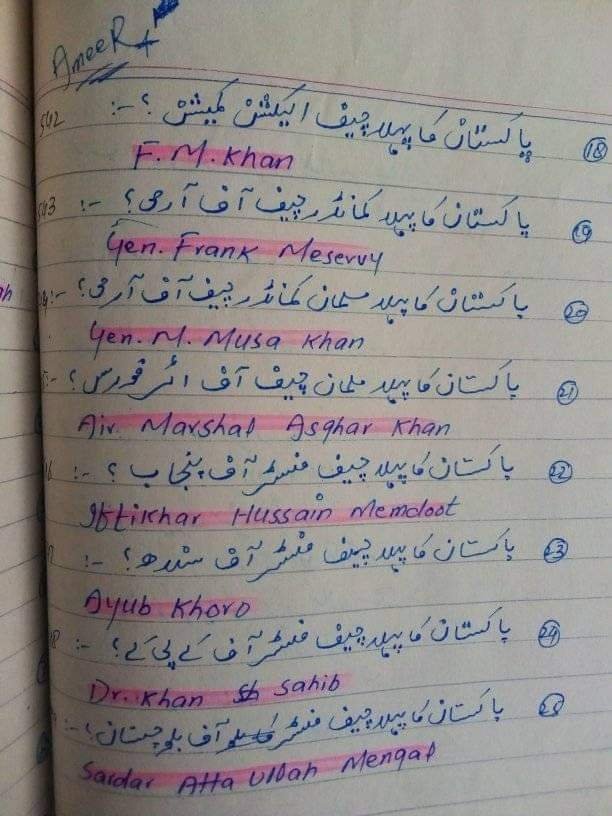 AmeeR
پاکستان کا پہلا چیف الیکشن کمیشن ؟ :- ⑱
F. M. Khan
پاکستان کا پہلا کمانڈر چیف آف آرمی ؟ :- ⑲
Gen. Frank Meservy
پاکستان کا پہلا مسلمان کمانڈر چیف آف آرمی ؟ :- ⑳
Gen. M. Musa Khan
پاکستان کا پہلا مسلمان چیف آف ائر فورس ؟ :- ㉑
Air Marshal Asghar Khan
پاکستان کا پہلا چیف منسٹر آف پنجاب ؟ :- ㉒
Iftikhar Hussain Memdoot
پاکستان کا پہلا چیف منسٹر آف سندھ ؟ :- ㉓
Ayub Khoro
پاکستان کا پہلا چیف منسٹر آف کے پی کے ؟ :- ㉔
Dr. Khan Sahib
پاکستان کا پہلا چیف منسٹر آف بلوچستان ؟ :- ㉕
Sardar Atta Ullah Mengal